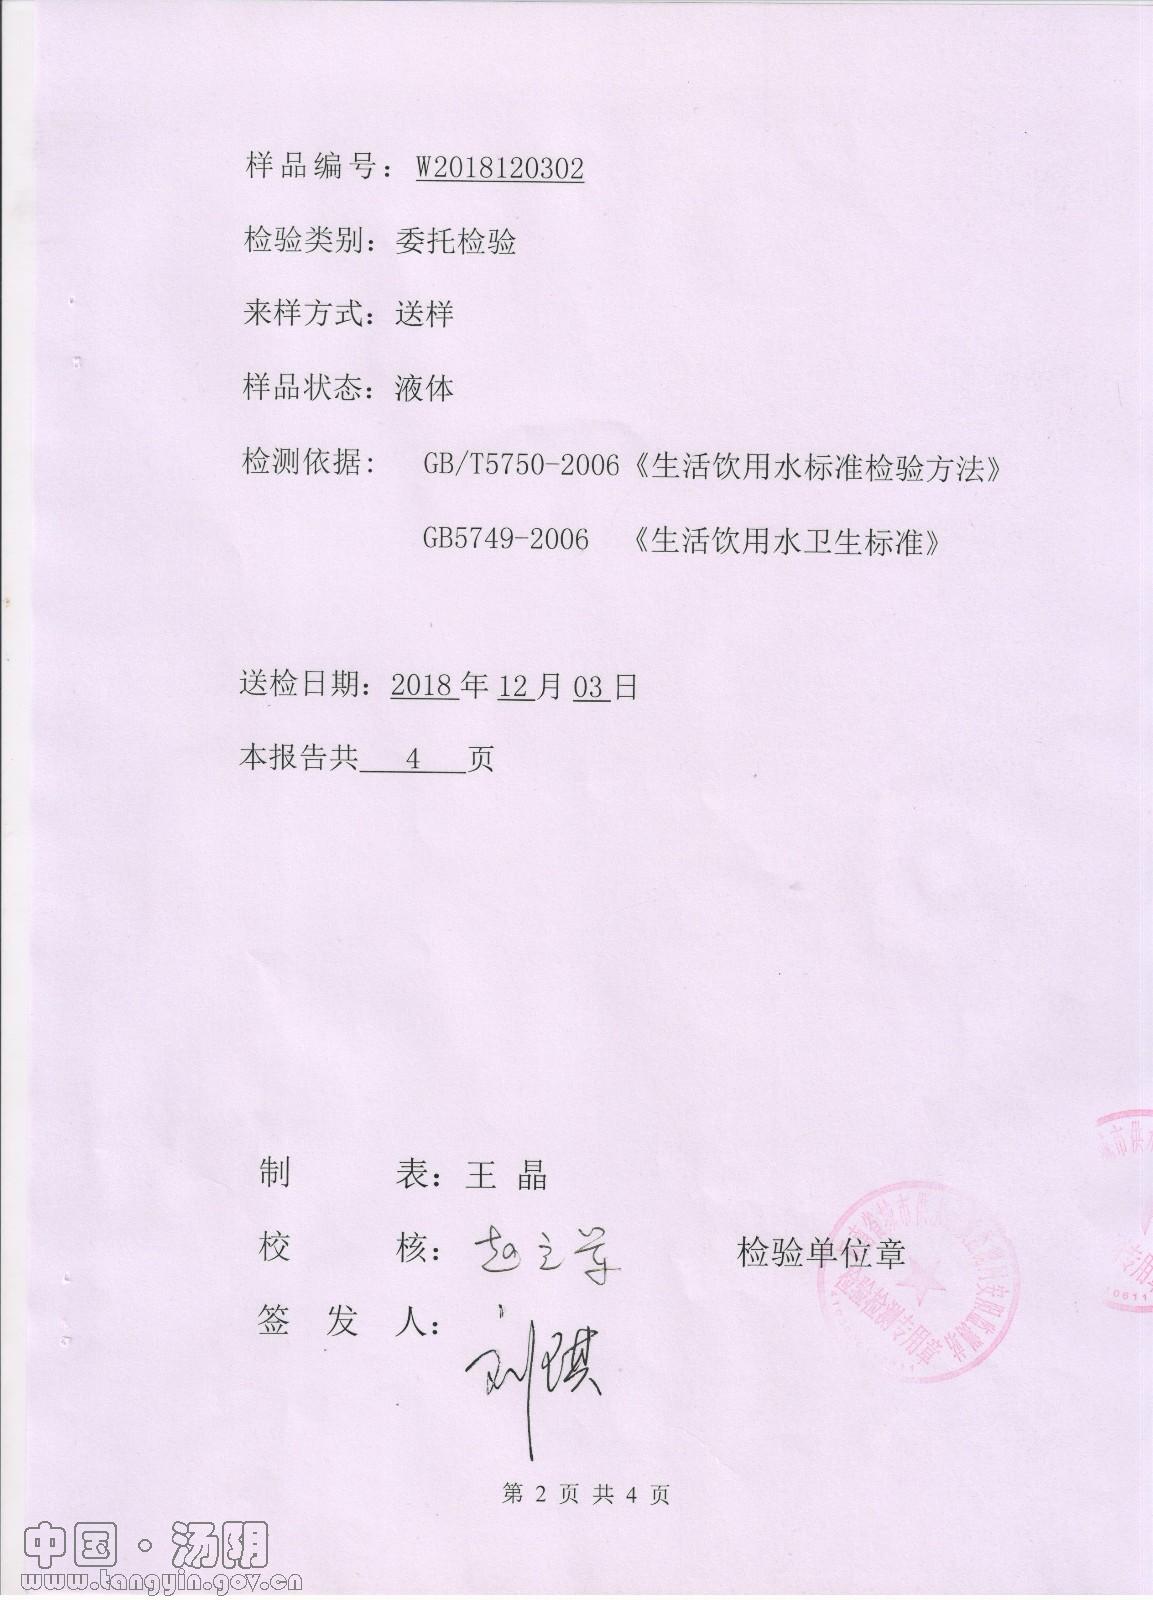 样品编号：W2018120302
检验类别：委托检验
来样方式：送样
样品状态：液体
检测依据： GB/T5750-2006《生活饮用水标准检验方法》
GB5749-2006 《生活饮用水卫生标准》
送检日期：2018年12月03日
本报告共 4 页
制 表：王 晶
校 核：
检验单位章
检验检测专用章
签 发 人：刘琪
第 2 页 共 4 页
中国·汤阴
www.tangyin.gov.cn